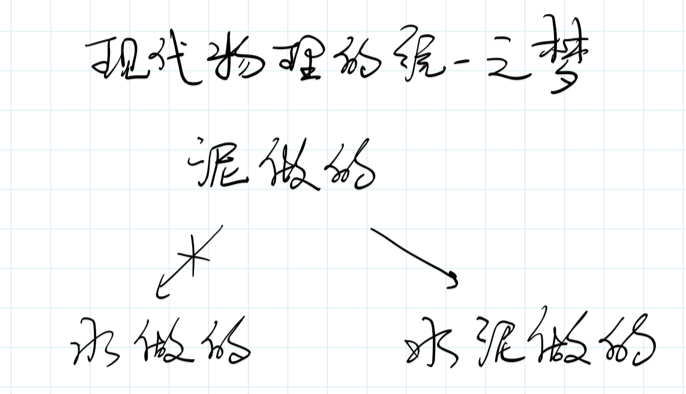 现代物理的统一之梦
泥做的
水做的 水泥做的